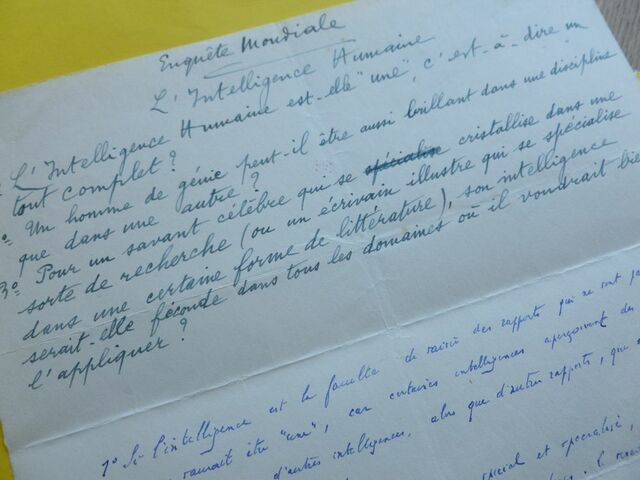 Enquête Mondiale
L'Intelligence Humaine
L'Intelligence Humaine est-elle "une", c'est-à-dire un
tout complet?
Un homme de génie peut-il être aussi brillant dans une discipline
que dans une autre?
3º Pour un savant célèbre qui se spécialise cristallise dans une
sorte de recherche (ou un écrivain illustre qui se spécialise
dans une certaine forme de littérature), son intelligence
serait-elle féconde dans tous les domaines où il voudrait bie
l'appliquer?
1º Si l'intelligence est la faculté de saisir des rapports qui ne sont pa
saurait être "une", car certaines intelligences aperçoivent des
d'autres intelligences, alors que d'autres rapports, que
spécial et spécialisé,